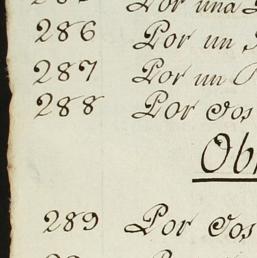 Por una
286 Por un
287 Por un
288 Por dos
Ob
289 Por dos